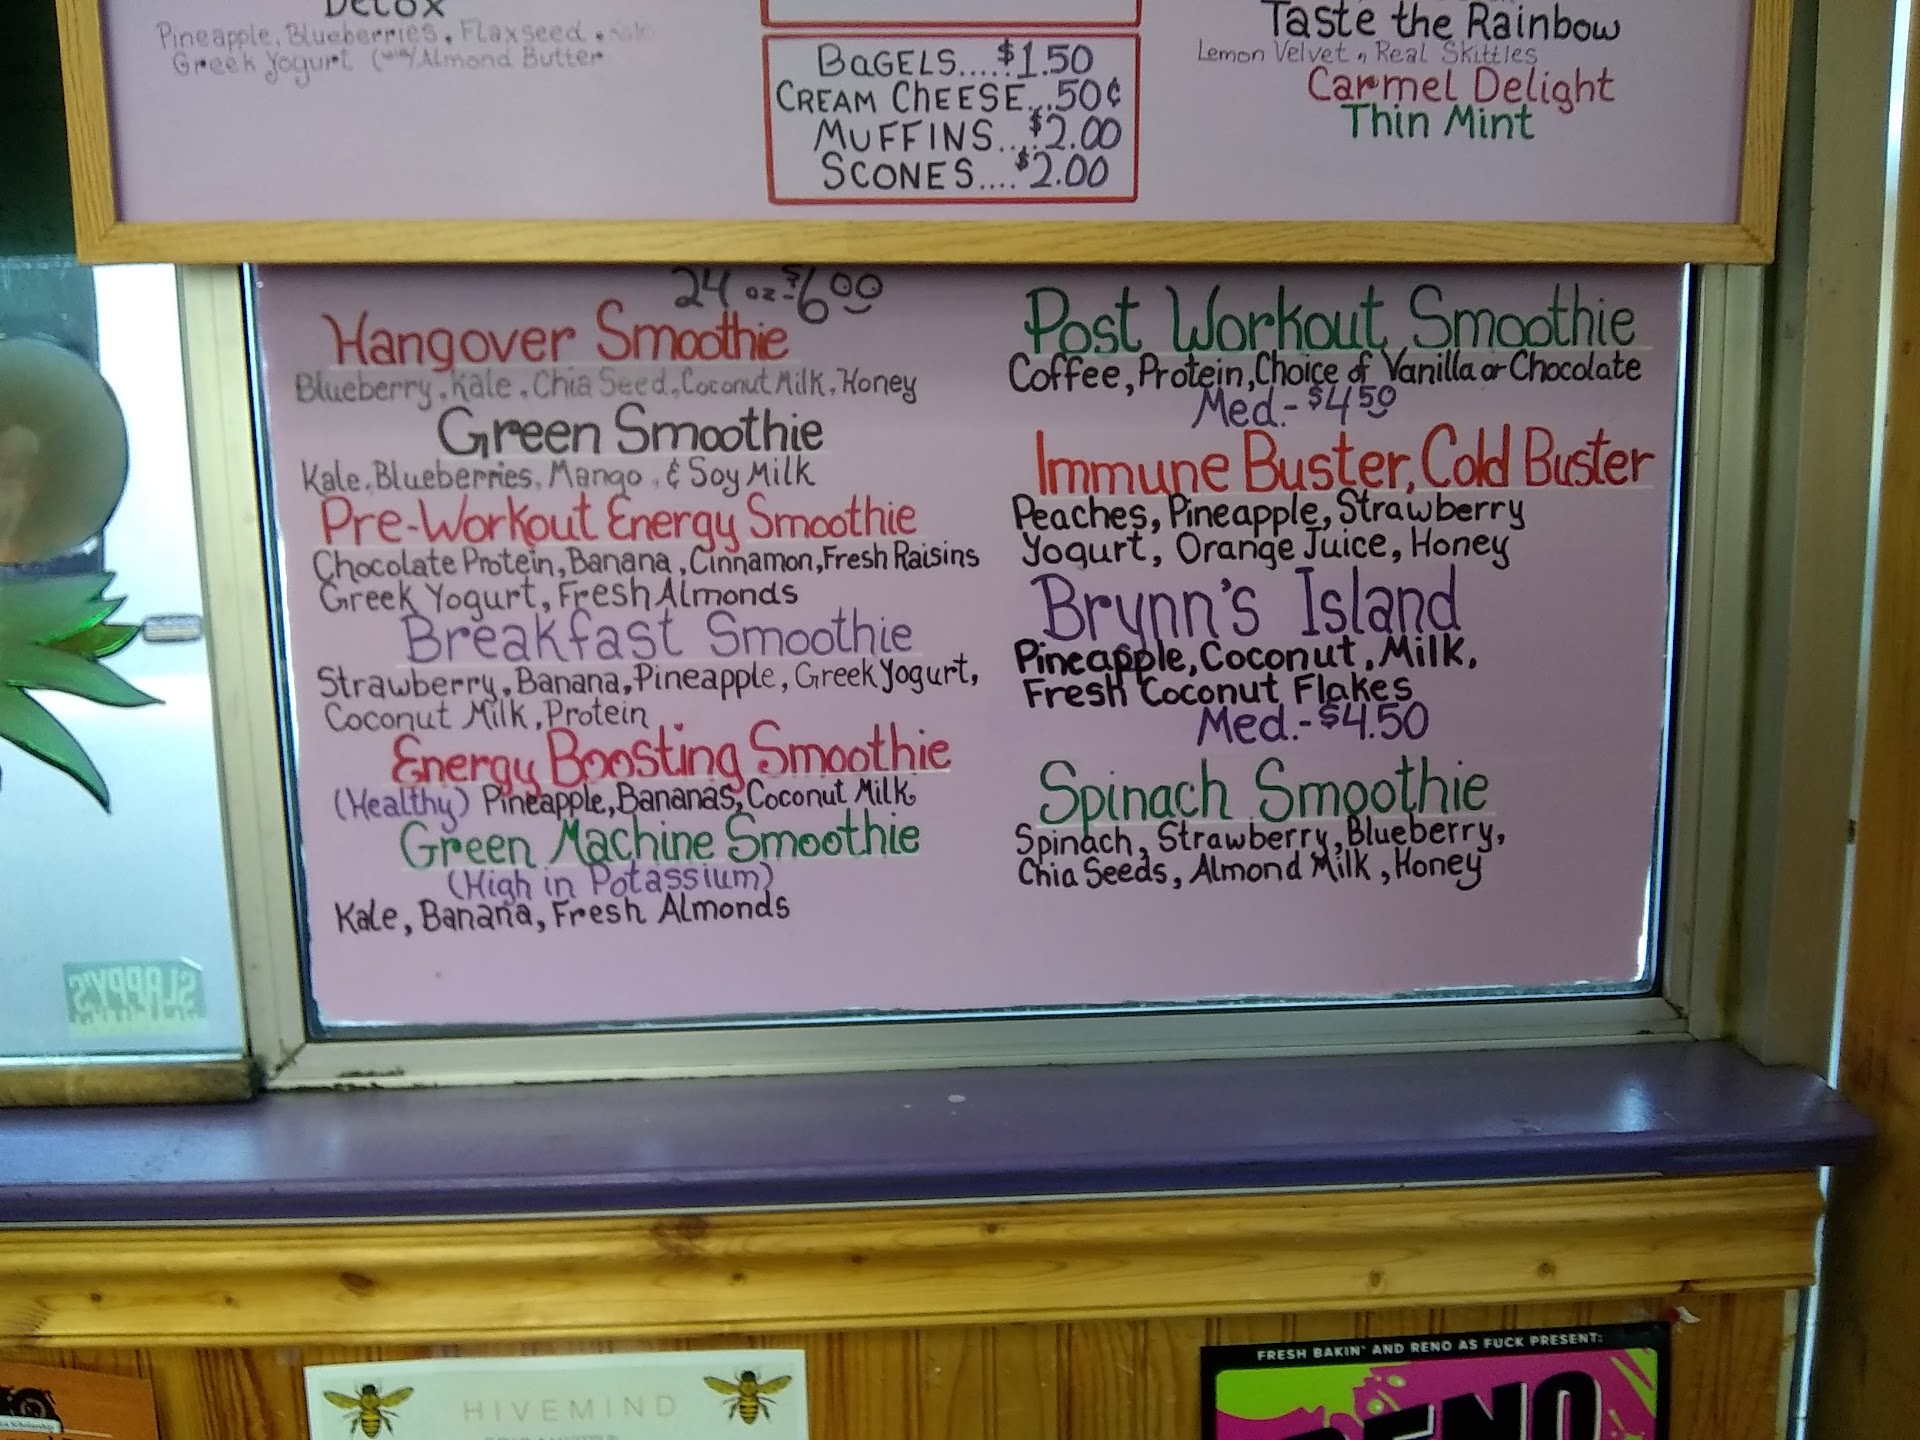 Detox
Pineapple, Blueberries, Flaxseed, Kale
Greek Yogurt (with) Almond Butter
BAGELS....$1.50
CREAM CHEESE...50¢
MUFFINS...$2.00
SCONES....$2.00
Taste the Rainbow
Lemon Velvet, Real Skittles
Carmel Delight
Thin Mint
24 oz - $6.00
Hangover Smoothie
Blueberry, Kale, Chia Seed, Coconut Milk, Honey
Green Smoothie
Kale, Blueberries, Mango, & Soy Milk
Pre-Workout Energy Smoothie
Chocolate Protein, Banana, Cinnamon, Fresh Raisins
Greek Yogurt, Fresh Almonds
Breakfast Smoothie
Strawberry, Banana, Pineapple, Greek Yogurt,
Coconut Milk, Protein
Energy Boosting Smoothie
(Healthy) Pineapple, Bananas, Coconut Milk
Green Machine Smoothie
(High in Potassium)
Kale, Banana, Fresh Almonds
Post Workout Smoothie
Coffee, Protein, Choice of Vanilla or Chocolate
Med.-$4.50
Immune Buster, Cold Buster
Peaches, Pineapple, Strawberry
Yogurt, Orange Juice, Honey
Brynn's Island
Pineapple, Coconut, Milk,
Fresh Coconut Flakes
Med.-$4.50
Spinach Smoothie
Spinach, Strawberry, Blueberry,
Chia Seeds, Almond Milk, Honey
SLAPPY'S
HIVEMIND
FRESH BAKIN' AND RENO AS FUCK PRESENT:
RENO